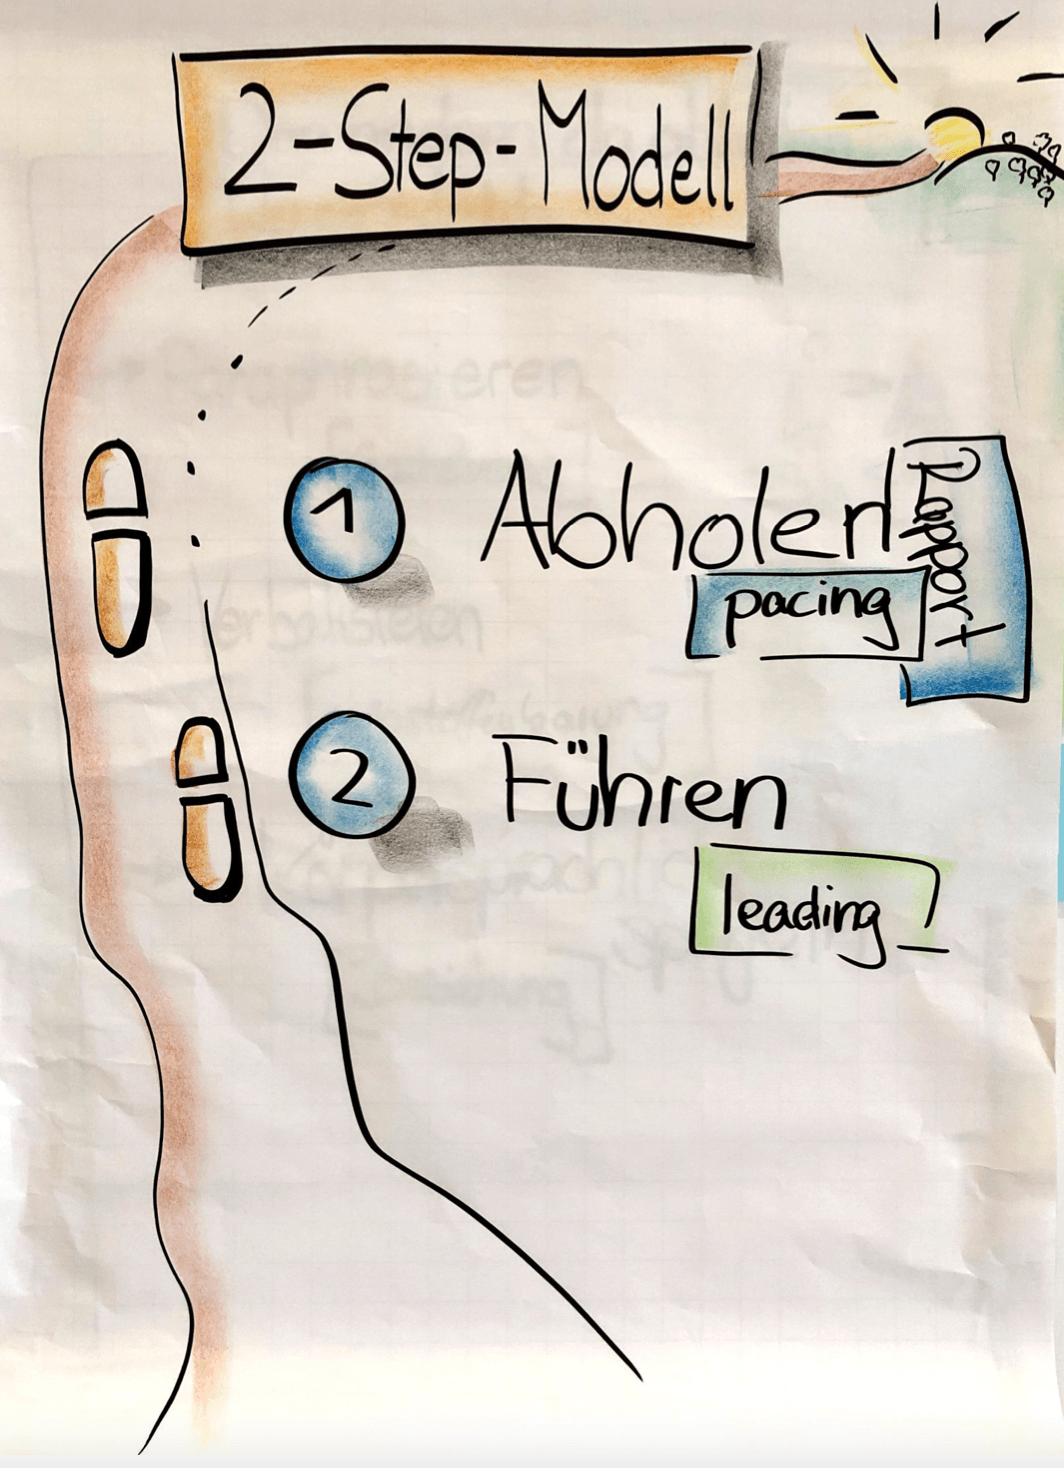 2-Step-Modell
1 Abholen
Rapport
pacing
2 Führen
leading